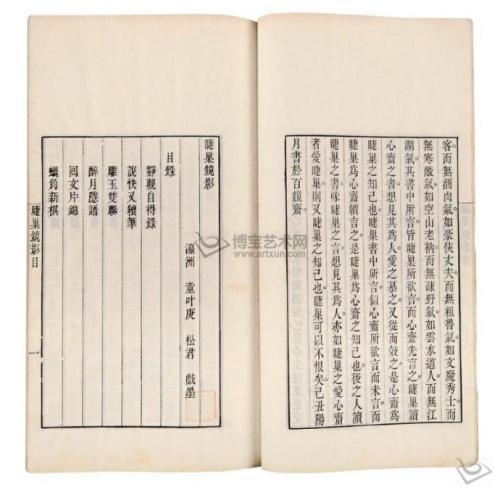 客而無酒肉氣如豪俠丈夫而無粗魯氣如文魔秀士而
無寒酸氣如空山老衲而無疎野氣如雲水道人而無江
湖氣其書中所言皆睫巢所欲言而心齋先言之睫巢讀
心齋之書想見其爲人愛之慕之又從而效之是心齋爲
睫巢之知己也睫巢書中所言似心齋所欲言而未言而
睫巢爲心齋續言之是睫巢爲心齋之知己也後之人讀
睫巢之書味睫巢之言想見其爲人亦如睫巢之愛心齋
者愛睫巢則又睫巢之知己也睫巢可以不恨矣己丑陽
月書於百鏡齋
睫巢鏡影
瀛洲 童叶庚 松君 戲墨
目錄
靜觀自得錄
說快又續筆
雕玉雙聯
醉月隱語
回文片錦
蝸角新棋
睫巢鏡影目 一
博宝艺术网
www.artxun.com